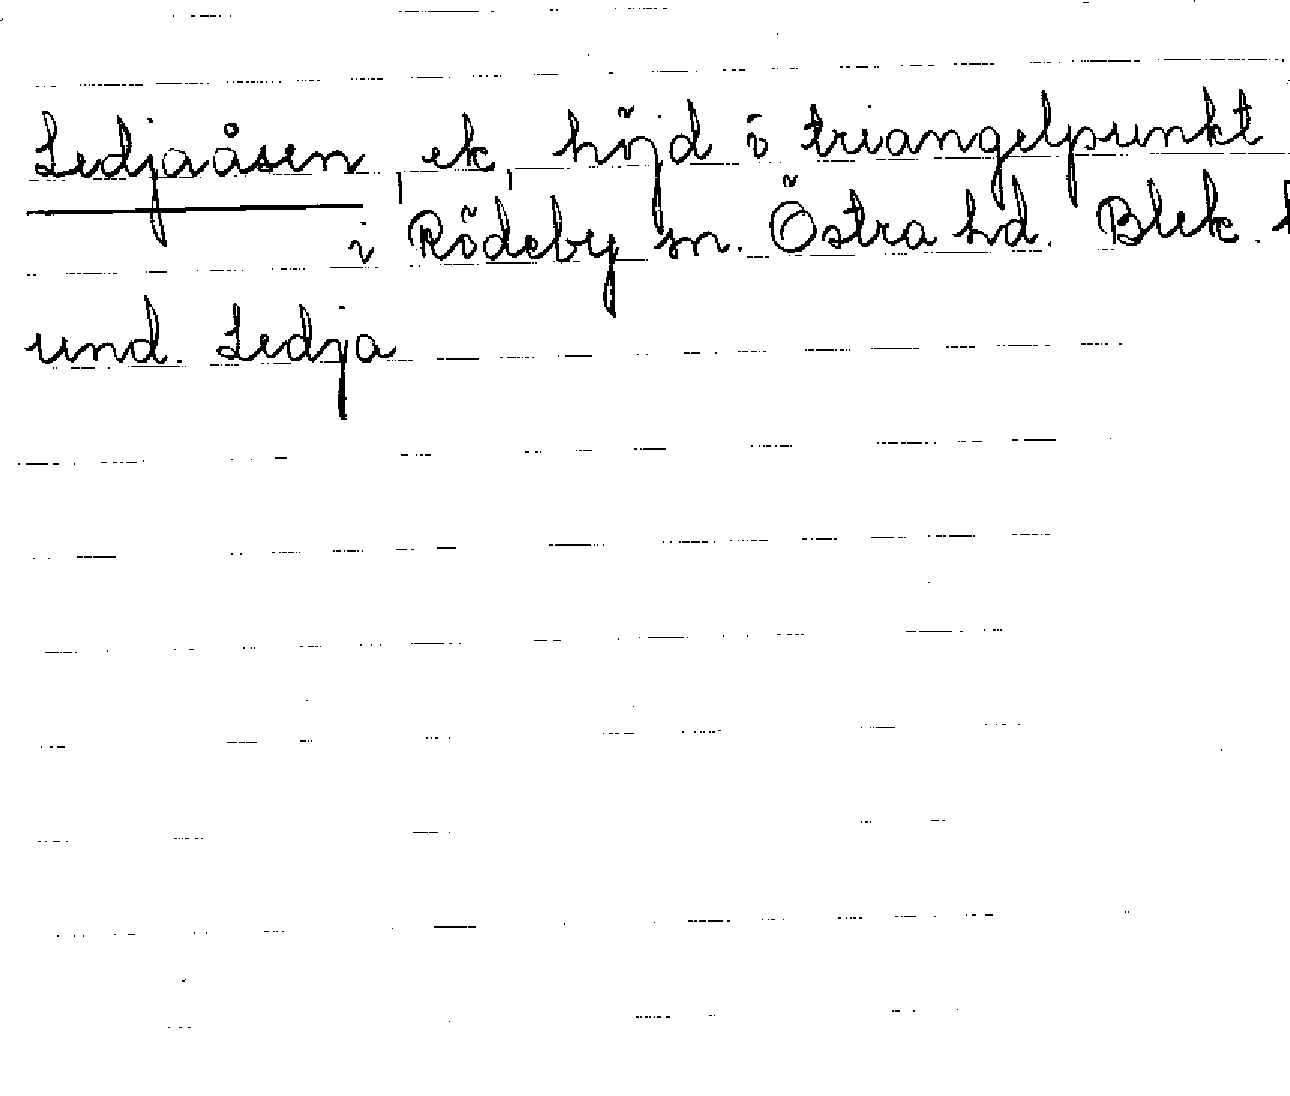 Ledjaåsen, ek, höjd i triangelpunkt
i Rödeby sn. Östra hd. Blek.
und. Ledja